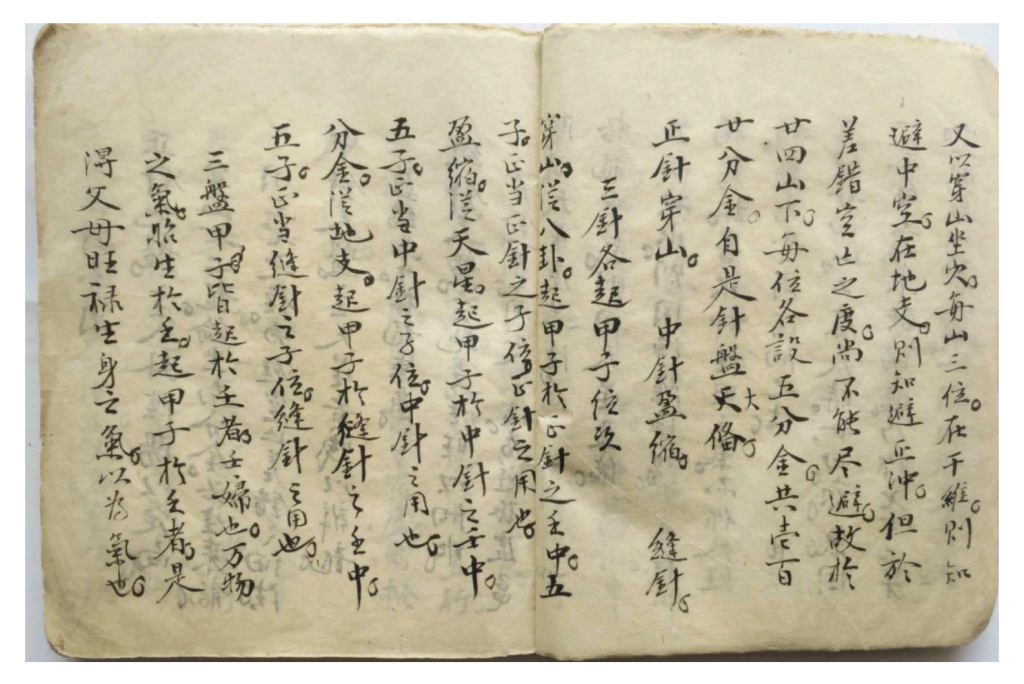 又以穿山坐穴。每山三位。在干維。則知
避中空。在地支。則知避正沖。但於
差錯空亡之度。尚不能尽避。故於
廿四山下。每位各設五分金。共壹百
廿分金。自是針盤大天俻。
正針穿山。　中針盈縮。　縫針。
三針各起甲子位次
穿山。從八卦。起甲子於正針之壬中。五
子。正当正針之子位。正針之用也。
盈縮。從天星。起甲子於中針之壬中。
五子。正当中針之子位。中針之用也。
分金。從地支。起甲子於縫針之壬中。
五子。正当縫針之子位。縫針之用也。
三盤甲子。皆起於壬者。壬婦也。万物
之氣。胎生於壬。起甲子於壬者。是
淂父母旺祿生身之氣。以為氣也。